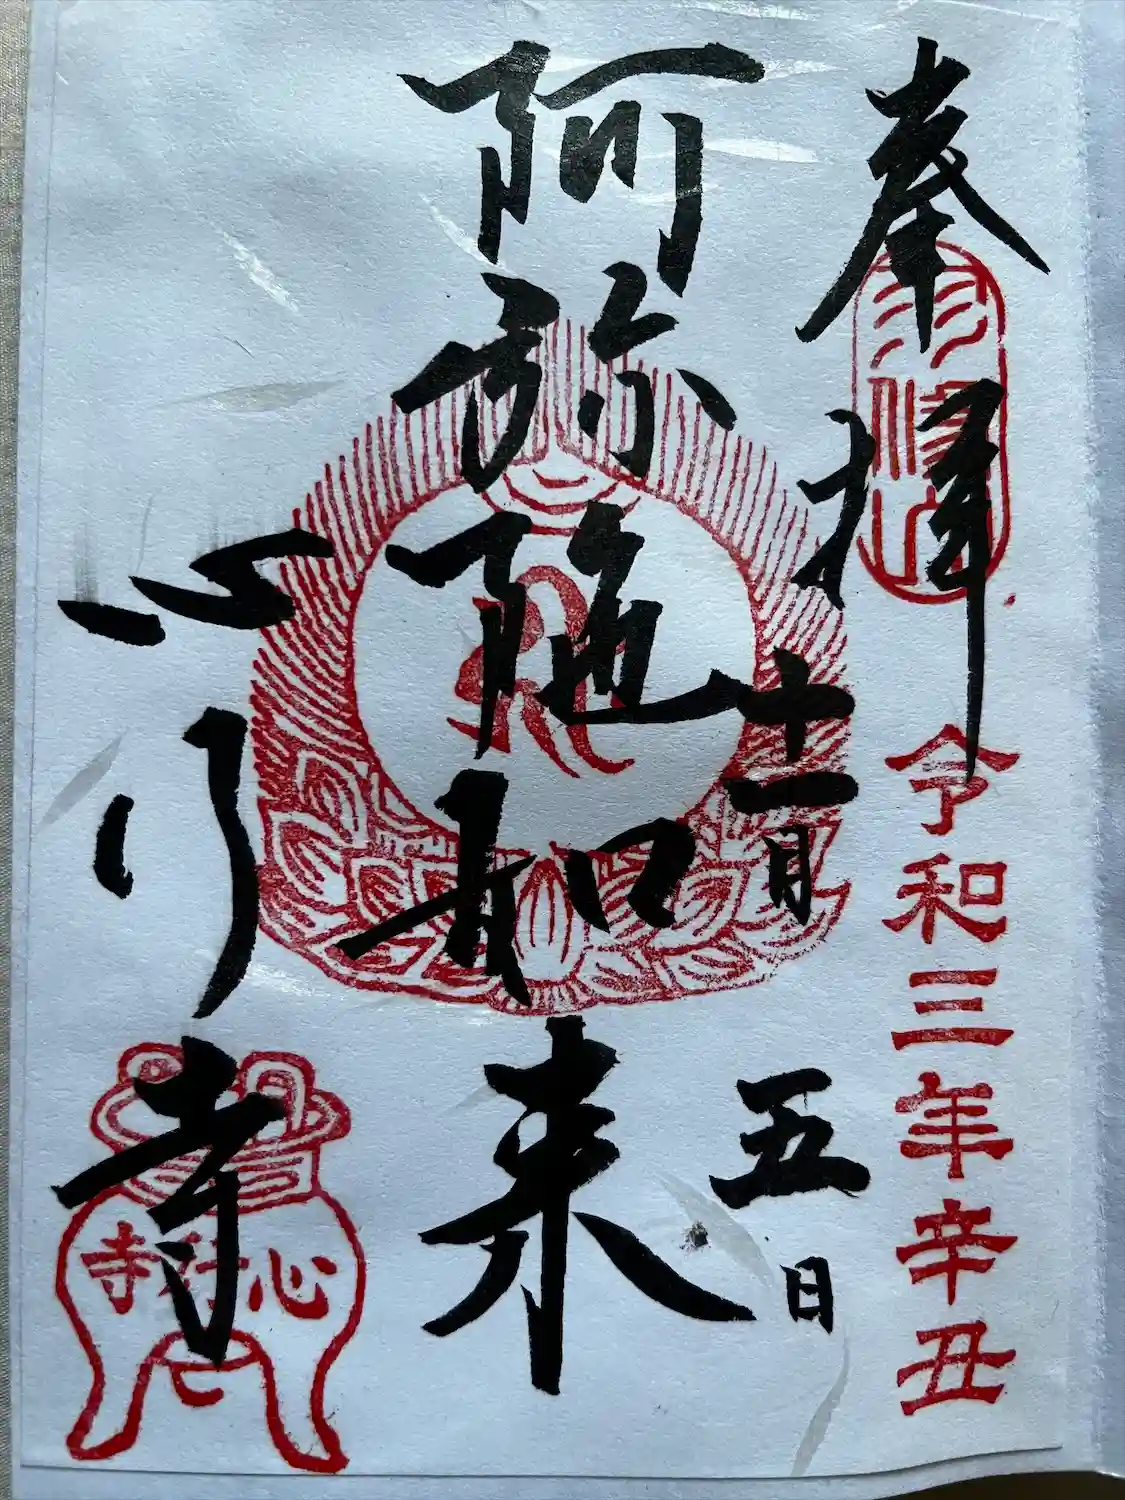 奉拝
令和三年辛丑
十一月五日
阿弥陀如来
心行寺
心行寺